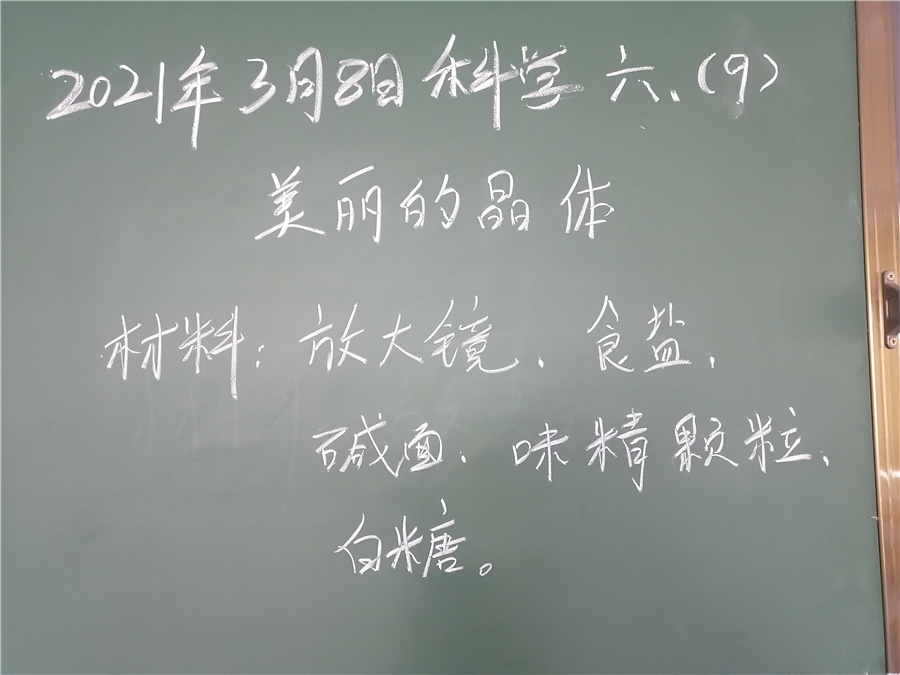 2021年3月8日科学 六、(9)
美丽的晶体
材料：放大镜、食盐、
碱面、味精颗粒、
白糖。